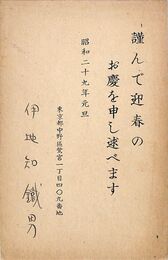 謹んで迎春の
お慶を申し述べます
昭和二十九年元旦
東京都中野區鷺宮一丁目四〇九番地
伊地知鐵男